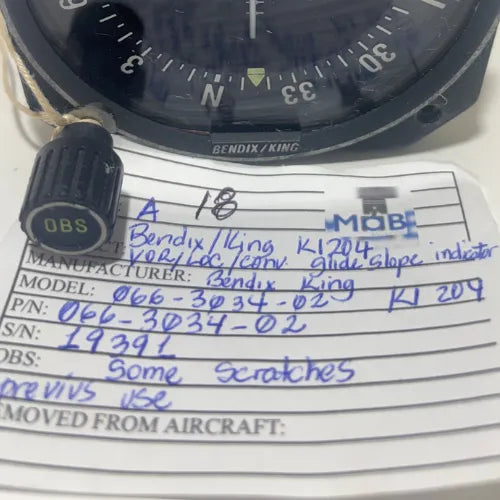 3 N 33 30
BENDIX/KING
OBS
A 18
MOB
Bendix/King KI204
VOR/LOC/conv. glide slope indicator
MANUFACTURER: Bendix King
MODEL: 066-3034-02 KI 204
P/N: 066-3034-02
S/N: 19391
OBS: Some scratches
previus use
EMOVED FROM AIRCRAFT: